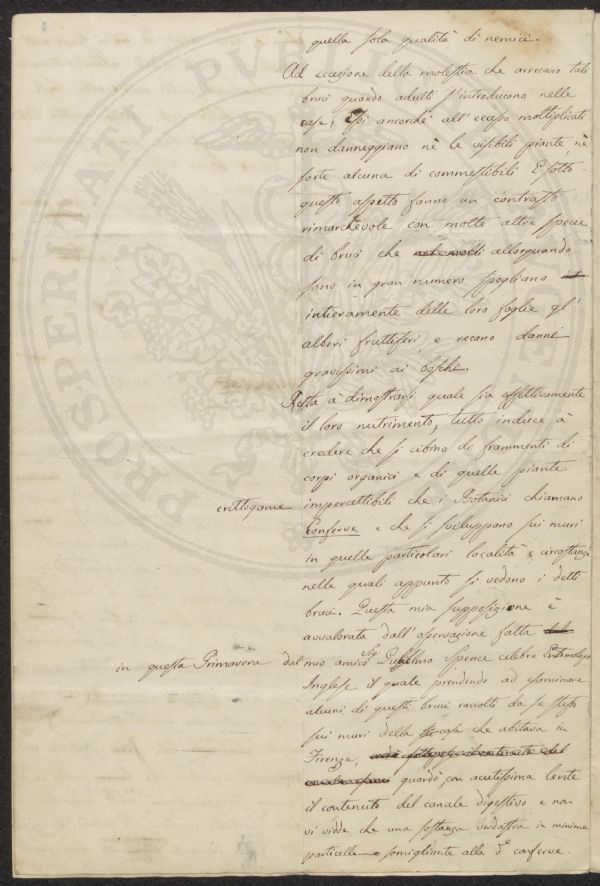 quella sola qualità di nemici.
Ad eccezione della molestia che arrecano tali
bruci quando adulti s'introducono nelle
case, Essi ancorchè all'eccesso moltiplicati
non danneggiano nè le visibili piante nè
sorte alcuna di commestibili E sotto
questo aspetto fanno un contrasto
rimarchevole con molte altre specie
di bruci che allorquando
sono in gran numero spogliano
intieramente delle loro foglie gl'
alberi fruttiferi, e recano danni
gravissimi ai boschi.
Resta à dimostrarsi quale sia effettivamente
il loro nutrimento, tutto induce à
credere che si cibino di frammenti di
corpi organici e di quelle piante
crittogame impercettibili che i Botanici chiamano
Conferve e che si sviluppano sui muri
in quelle particolari località e circostanze
nelle quali appunto si vedono i detti
bruci. Questa mia supposizione è
avvalorata dall'osservazione fatta
in questa Primavera dal mio amico Sig. Guglielmo Spence celebre Entomologo
Inglese il quale prendendo ad esaminare
alcuni di questi bruci raccolti da se stesso
sui muri della casa che abitava in
Firenze, 
guardò con acutissima lente
il contenuto del canale digestivo e non
vi vidde che una sostanza verdastra in minime
particelle somigliante alla d.e conferve.
PROSPERITATI PVBLICAE